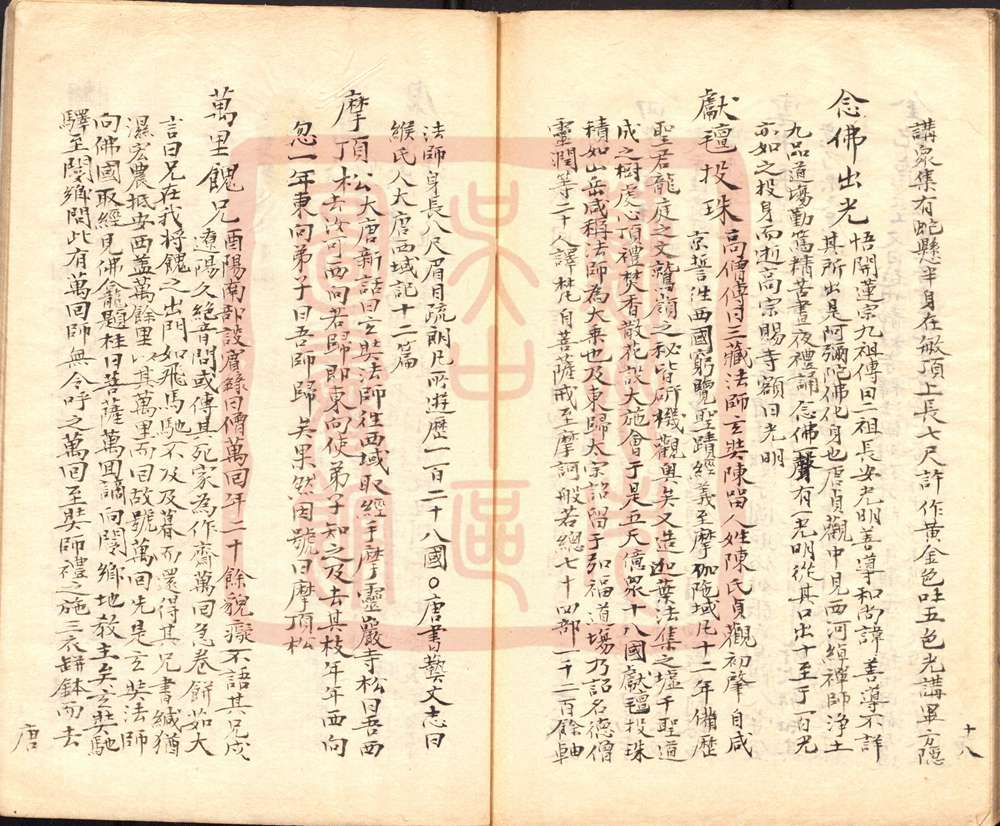 講眾集有蛇懸半身在檐頂上長七尺許作黃金色吐五色光講畢方隱
念佛出光 悟開蓮宗九祖傳曰二祖長安光明善導和尚諱善導不詳
其所出是阿彌陀佛化身也唐貞觀中見西河綽禪師淨土
九品道場勤篤精苦晝夜禮誦念佛一聲有一光明從其口出十至于百光
亦如之投身而逝高宗賜寺額曰光明
獻氎投珠 高僧傳曰三藏法師玄奘陳留人姓陳氏貞觀初肇自咸
京誓往西國窮覽聖蹟經義至摩伽陁域凡十二年備歷
聖君龍庭之文鷲嶺之秘皆研機觀奧矣又造迦葉法集之墟千聖道
成之樹虔心頂禮焚香散花設大施會于是五天億眾十八國獻氎投珠
積如山岳咸稱法師為大乘也及東歸太宗詔留于弘福道場乃詔名德僧
靈潤等二十人譯梵自菩薩戒至摩訶般若總七十四部一千二百餘軸
法師身長八尺眉目疏朗凡所遊歷一百二十八國○唐書藝文志曰
緱氏人大唐西域記十二篇
摩頂松 大唐新話曰玄奘法師往西域取經手摩靈巖寺松曰吾西
去汝可西向若歸即東向使弟子知之及去其枝年年西向
忽一年東向弟子曰吾師歸矣果然因號曰摩頂松
萬里餽兄 酉陽南部設賓錄曰僧萬回年二十餘貌癡不語其兄戍
遼陽久絕音問或傳其死家為作齋萬回忽卷餅如大
言曰兄在我將餽之出門如飛馬馳不及及暮而還得其兄書緘猶
濕宏農抵安西蓋萬餘里以其萬里而回故號萬回先是玄奘法師
向佛國取經見佛龕題柱曰菩薩萬回謫向閿鄉地教主矣玄奘馳
驛至閿鄉問此有萬回師無令呼之萬回至奘師禮之施三衣缾鉢而去
十八
唐